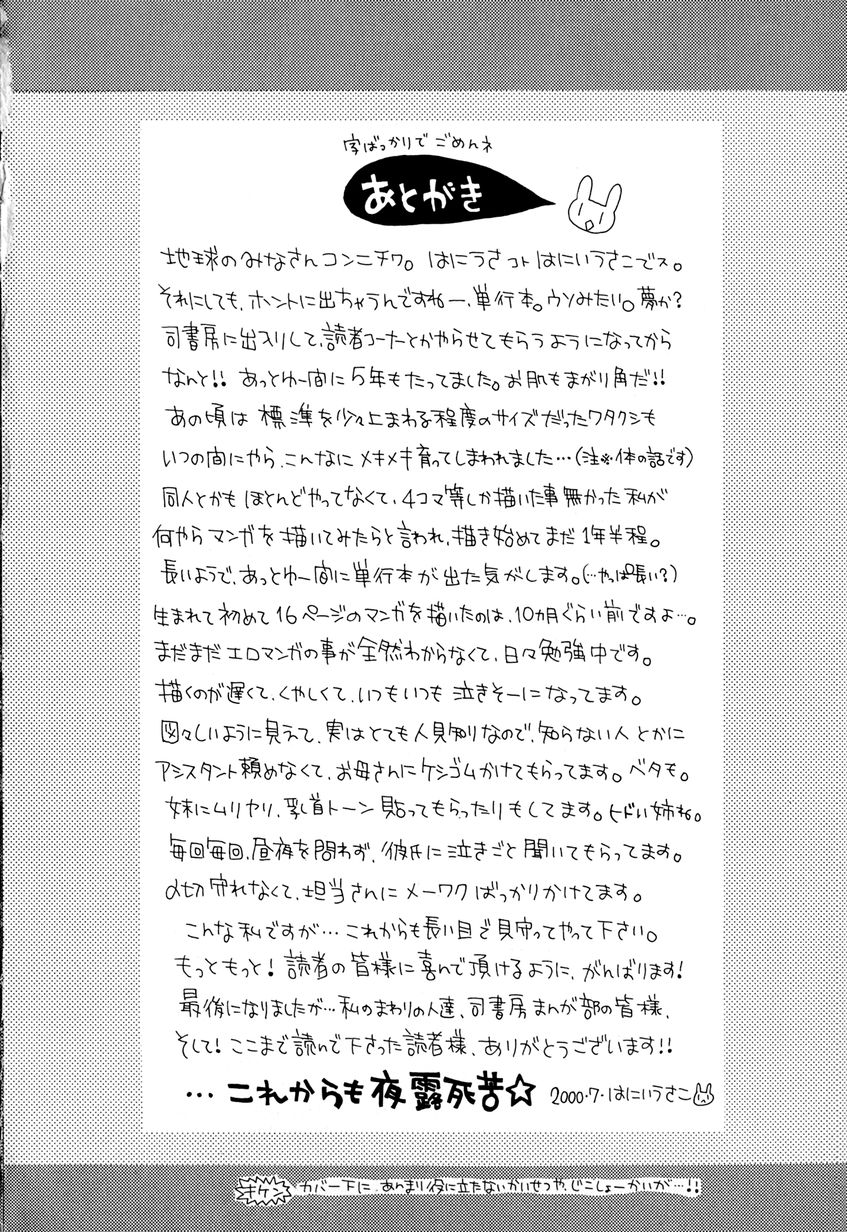 字ばっかりで ごめんネ
あとがき
地球のみなさんコンニチワ。はにうさコト はにいうさこでス。
それにしても、ホントに出ちゃうんですねー、単行本。ウソみたい。夢か?
司書房に出入りして、読者コーナーとかやらせてもらうようになってから
なんと!! あっとゆー間に5年もたってました。お肌もまがり角だ!!
あの頃は 標準を少々上まわる程度のサイズだったワタクシも
いつの間にやら、こんなに メキメキ育ってしまわれました…(注※体の話です)
同人とかも ほとんどやってなくて、4コマ等しか描いた事無かった私が
何やら マンガを 描いてみたらと言われ、描き始めてまだ1年半程。
長いようで、あっとゆー間に単行本が出た気がします。(…やっぱ長い?)
生まれて初めて16ページのマンガを描いたのは、10カ月ぐらい前ですよ…。
まだまだ エロマンガの事が全然わからなくて、日々勉強中です。
描くのが遅くて、くやしくて、いつもいつも 泣きそーになってます。
図々しいように見えて、実はとても人見知りなので、知らない人とかに
アシスタント頼めなくて、お母さんにケシゴムかけてもらってます。ベタも。
妹にムリヤリ、乳首トーン貼ってもらったりもしてます。ヒドい姉ね。
毎回毎回、昼夜を問わず、彼氏に泣きごと聞いてもらってます。
〆切守れなくて、担当さんにメーワクばっかりかけてます。
こんな私ですが… これからも長い目で見守ってやって下さい。
もっともっと! 読者の皆様に喜んで頂けるように、がんばります!
最後になりましたが…私のまわりの人達、司書房まんが部の皆様、
そして! ここまで読んで下さった読者様、ありがとうございます!!
…これからも夜露死苦☆ 2000・7・はにいうさこ
オケン カバー下に、あんまり役に立たないかいせつや、じこしょーかいが…!!